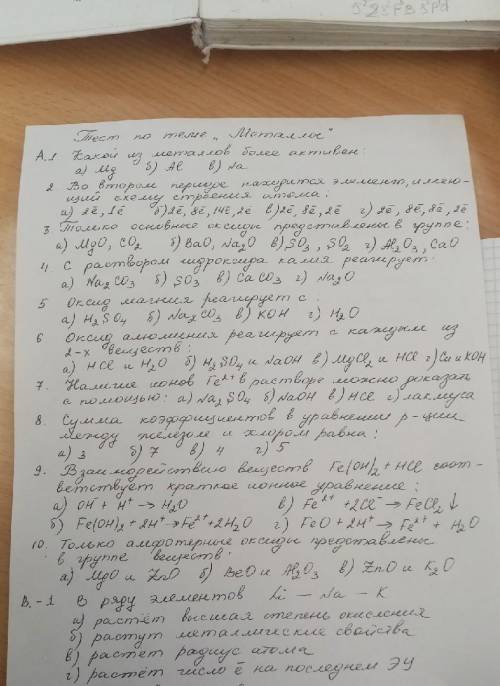 Тест по теме „Металлы"
А.1 Какой из металлов более активен:
а) Mg б) Al в) Na
2. Во втором периоде находится элемент, имею-
щий схему строения атома:
а) 2ē, 1ē б) 2ē, 8ē, 14ē, 2ē в) 2ē, 8ē, 2ē г) 2ē, 8ē, 8ē, 2ē
3. Только основные оксиды представлены в группе:
а) MgO, CO2 б) BaO, Na2O в) SO3, SO2 г) Al2O3, CaO
4 С раствором гидроксида калия реагирует:
а) Na2CO3 б) SO3 в) CaCO3 г) Na2O
5 Оксид магния реагирует с:
а) H2SO4 б) Na2CO3 в) KOH г) H2O
6 Оксид алюминия реагирует с каждым из
2-х веществ:
а) HCl и H2O б) H2SO4 и NaOH в) MgCl2 и HCl г) Cu и KOH
7. Наличие ионов Fe2+ в растворе можно доказать
с помощью: а) Na2SO4 б) NaOH в) HCl г) лакмуса
8. Сумма коэффициентов в уравнении р-ции
между железом и хлором равна:
а) 3 б) 7 в) 4 г) 5
9. Взаимодействию веществ Fe(OH)2 + HCl соот-
ветствует краткое ионное уравнение:
а) OH- + H+ → H2O в) Fe2+ + 2Cl- → FeCl2 ↓
б) Fe(OH)2 + 2H+ → Fe2+ + 2H2O г) FeO + 2H+ → Fe2+ + H2O
10. Только амфотерные оксиды представлены
в группе веществ:
а) MgO и ZnO б) BeO и Al2O3 в) ZnO и K2O
В. - 1 В ряду элементов Li — Na — K
а) растёт высшая степень окисления
б) растут металлические свойства
в) растёт радиус атома
г) растёт число ē на последнем ЭУ